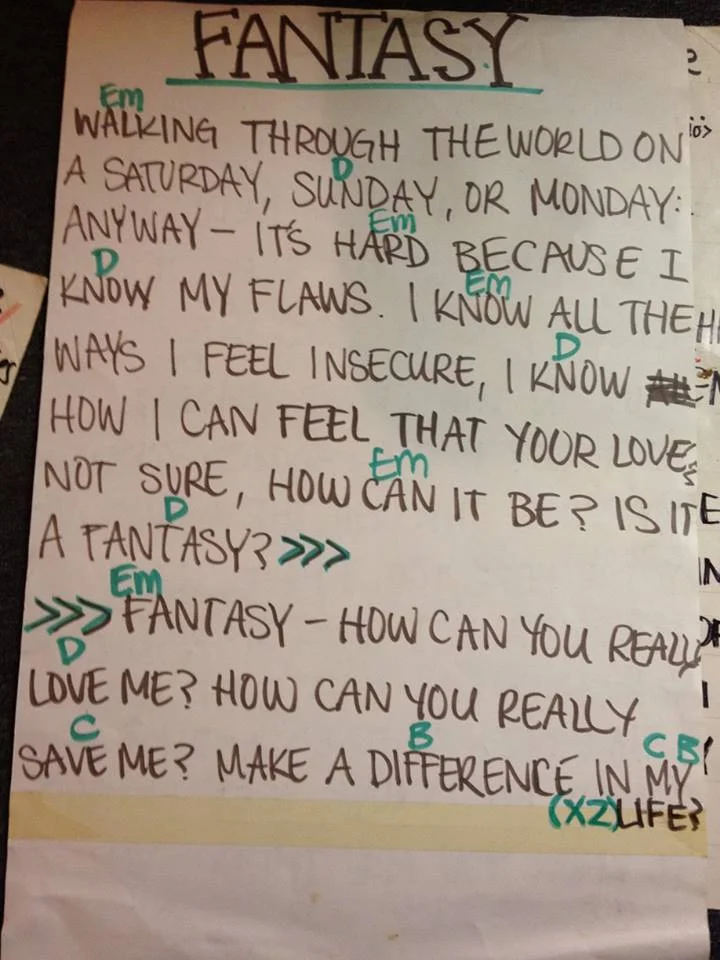 FANTASY
Em
WALKING THROUGH THE WORLD ON
D
A SATURDAY, SUNDAY, OR MONDAY:
Em
ANYWAY - IT'S HARD BECAUSE I
D Em
KNOW MY FLAWS. I KNOW ALL THE
D
WAYS I FEEL INSECURE, I KNOW
HOW I CAN FEEL THAT YOUR LOVE'S
Em
NOT SURE, HOW CAN IT BE? IS IT
D
A FANTASY? >>>
Em
>>> FANTASY - HOW CAN YOU REALLY
D
LOVE ME? HOW CAN YOU REALLY
C B C B
SAVE ME? MAKE A DIFFERENCE IN MY
(X2) LIFE?